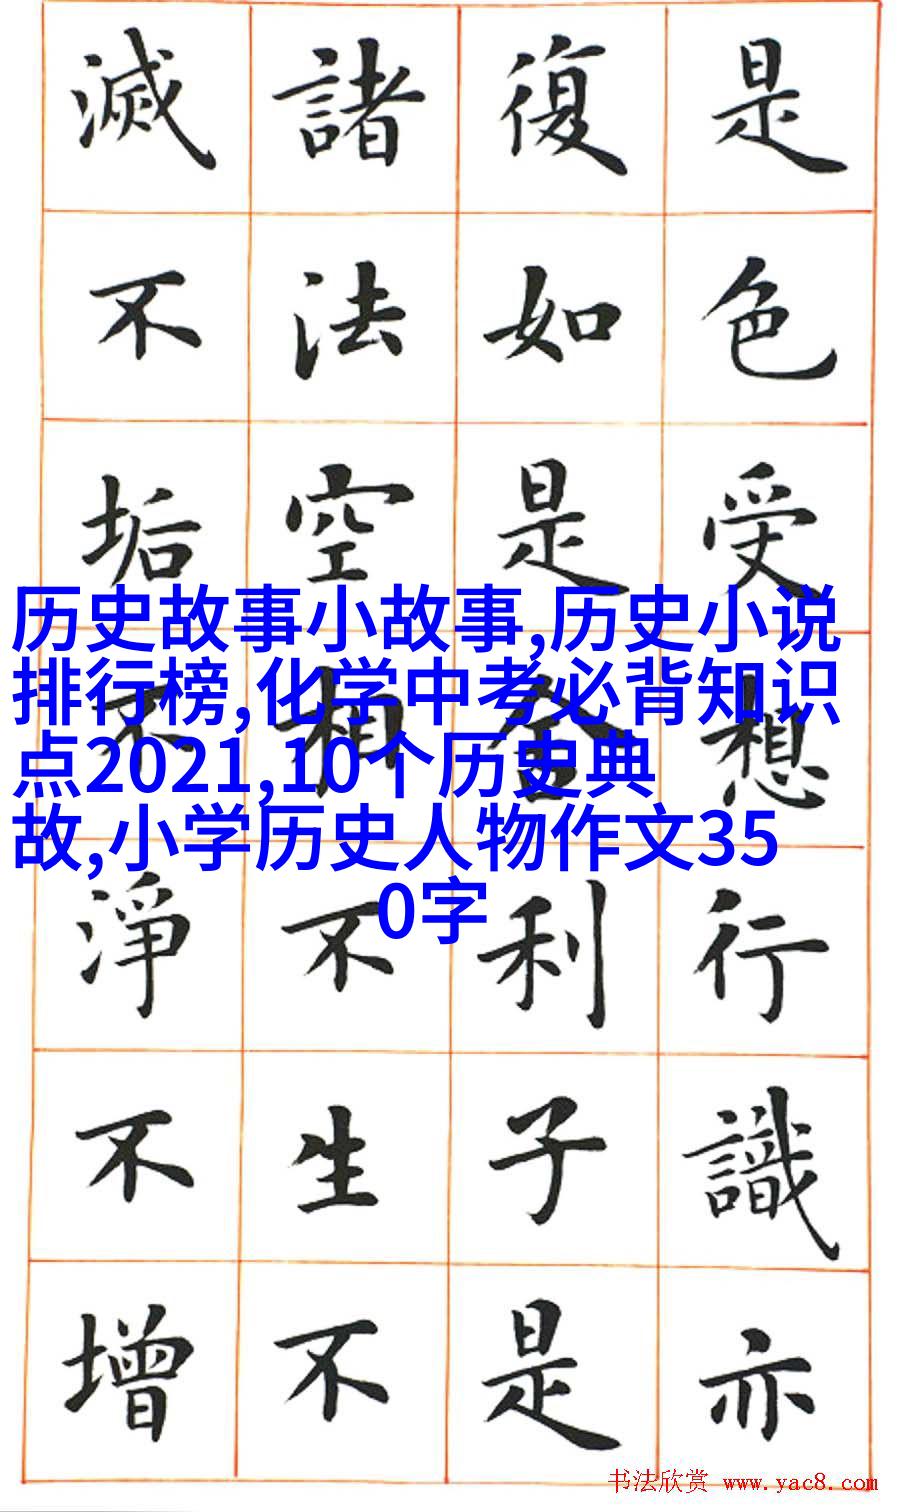 是色受想行識亦
復如是舍利子是
諸法空相不生不
滅不垢不淨不增
历史故事小故事,历史小说
排行榜,化学中考必背知识
点2021,10个历史典
故,小学历史人物作文35
0字
书法欣赏 www.yac8.com